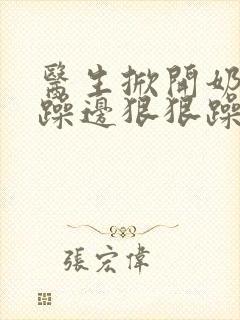 醫生掀開奶
躁邊狠狠躁
張宏偉